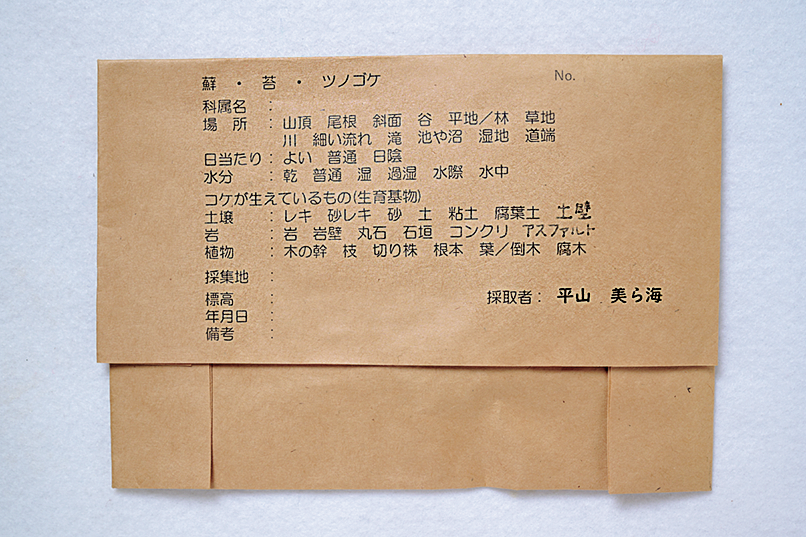 蘚 ・ 苔 ・ ツノゴケ No.
科属名 :
場 所 : 山頂 尾根 斜面 谷 平地/林 草地
川 細い流れ 滝 池や沼 湿地 道端
日当たり : よい 普通 日陰
水分 : 乾 普通 湿 過湿 水際 水中
コケが生えているもの(生育基物)
土壌 : レキ 砂レキ 砂 土 粘土 腐葉土 土壁
岩 : 岩 岩壁 丸石 石垣 コンクリ アスファルト
植物 : 木の幹 枝 切り株 根本 葉/倒木 腐木
採集地 :
標高 : 採取者: 平山 美ら海
年月日 :
備考 :